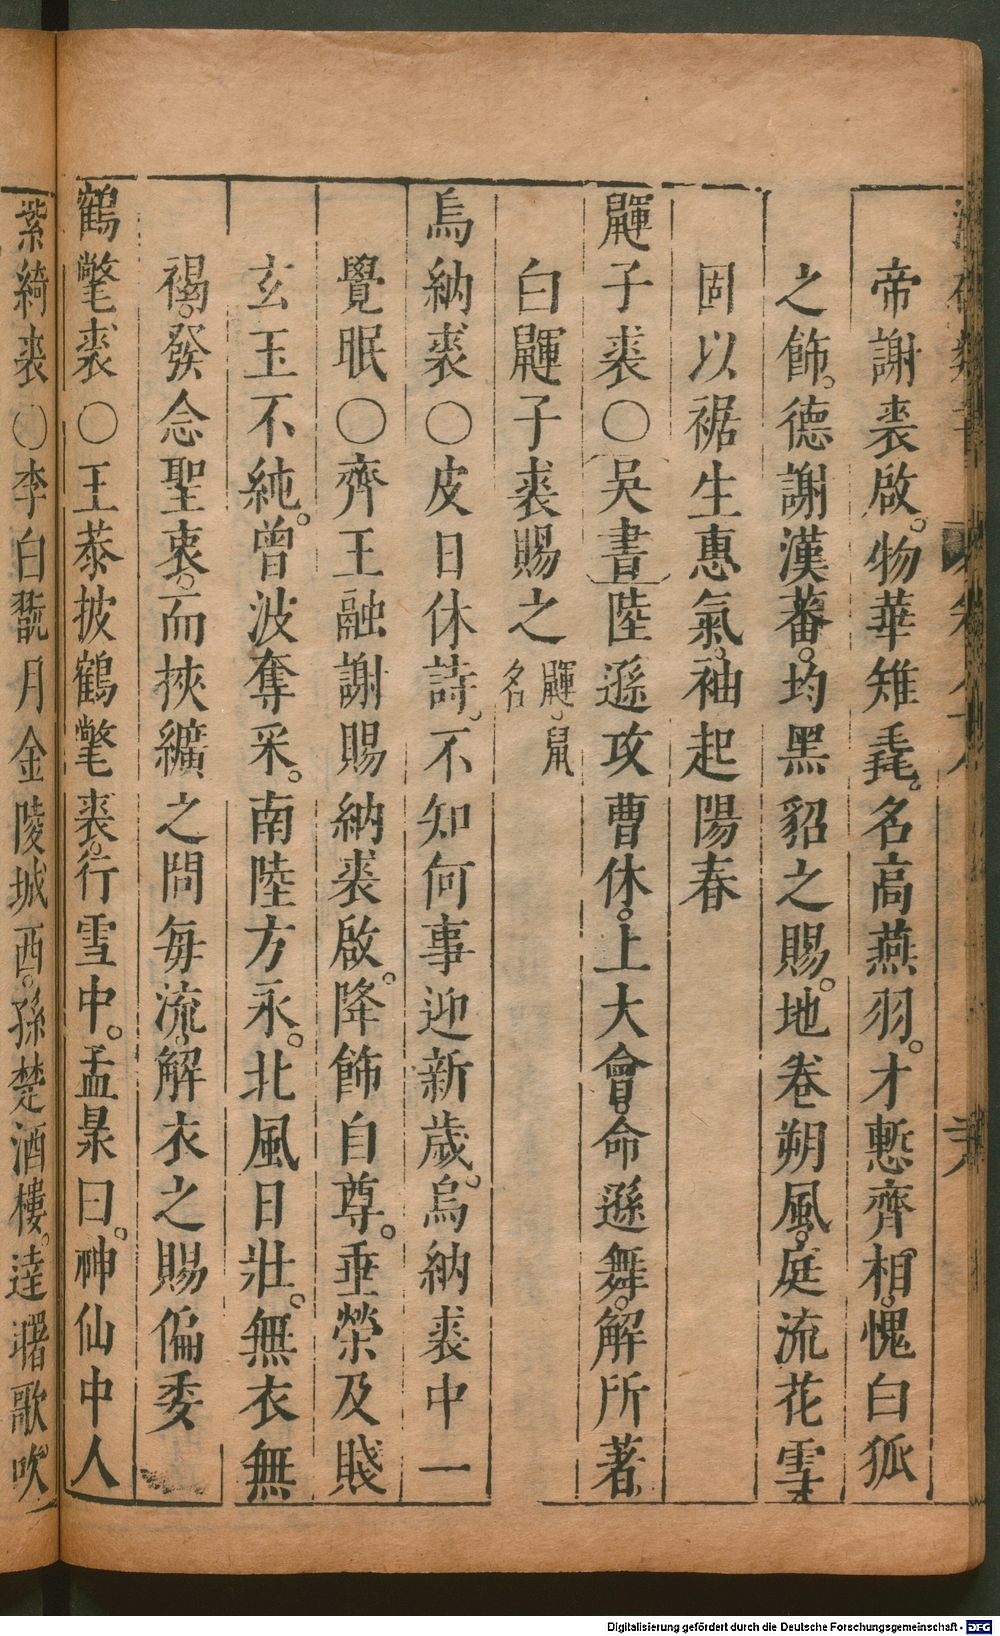 帝謝裘啟。物華雉毳。名高燕羽。才慙齊相。愧白狐
之飾。德謝漢蕃。均黑貂之賜。地卷朔風。庭流花雪
固以裾生惠氣。袖起陽春
鼲子裘○吳書陸遜攻曹休。上大會。命遜舞。解所著
白鼲子裘賜之鼲。鼠名
烏納裘○皮日休詩。不知何事迎新歲。烏納裘中一
覺眠○齊王融謝賜納裘啟。降飾自尊。垂榮及賤
玄玉不純。曾波奪采。南陸方永。北風日壯。無衣無
褐。發念聖衷。而挾纊之問每流。解衣之賜偏委
鶴氅裘○王恭披鶴氅裘。行雪中。孟杲曰。神仙中人
紫綺裘○李白翫月金陵城西。孫楚酒樓。達曙歌吹
Digitalisierung gefördert durch die Deutsche Forschungsgemeinschaft - DFG